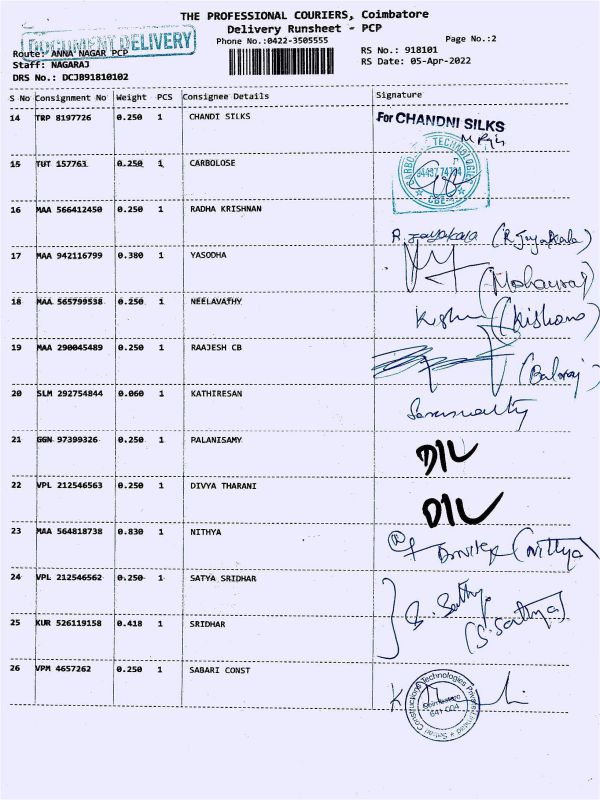 THE PROFESSIONAL COURIERS, Coimbatore
Delivery Runsheet - PCP
DOCUMENT DELIVERY
Phone No.:0422-3505555
Page No.:2
Route: ANNA NAGAR PCP
RS No.: 918101
Staff: NAGARAJ
RS Date: 05-Apr-2022
DRS No.: DCJB91810102
S No Consignment No Weight PCS Consignee Details Signature
14 TRP 8197726 0.250 1 CHANDI SILKS
For CHANDNI SILKS
15 TUT 157763 0.250 1 CARBOLOSE
CARBOLOSE TECHNOLOGIES
94437 74704
CBE
16 MAA 566412450 0.250 1 RADHA KRISHNAN
R. Jayakala (R. Jayakala)
17 MAA 942116799 0.380 1 YASODHA
(Mohanraj)
18 MAA 565799538 0.250 1 NEELAVATHY
(Kishore)
19 MAA 290045489 0.250 1 RAAJESH CB
(Balaraj)
20 SLM 292754844 0.060 1 KATHIRESAN
21 GGN 97399326 0.250 1 PALANISAMY
DIL
22 VPL 212546563 0.250 1 DIVYA THARANI
DIL
23 MAA 564818738 0.830 1 NITHYA
(Nithya)
24 VPL 212546562 0.250 1 SATYA SRIDHAR
S. Sathya
(S. Sathya)
25 KUR 526119158 0.418 1 SRIDHAR
26 VPM 4657262 0.250 1 SABARI CONST
Sabari Constructional Technologies Private Limited
Coimbatore
641 004